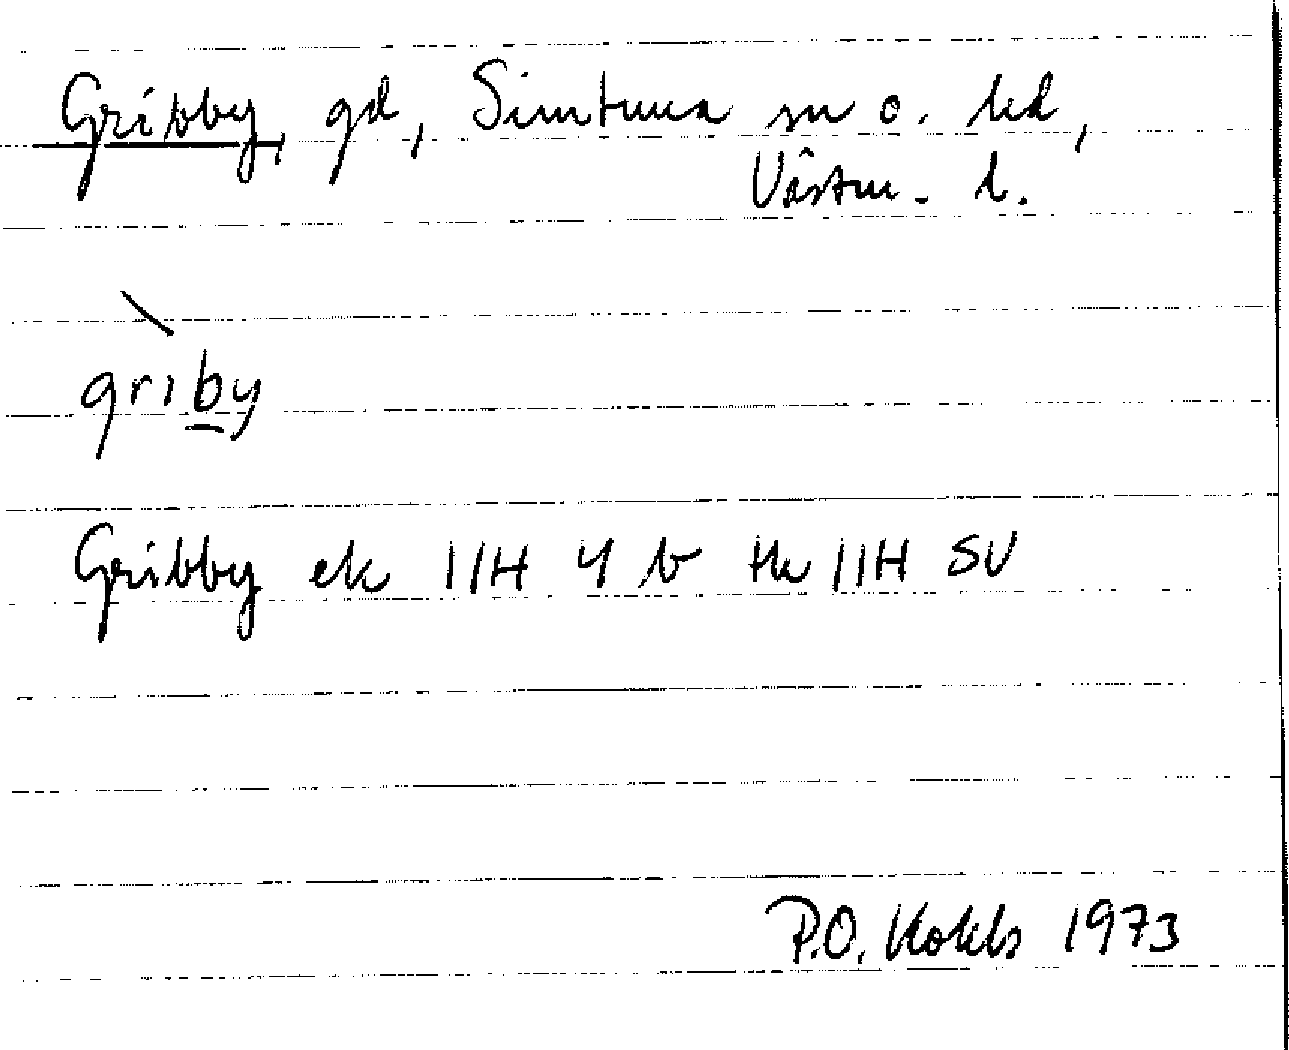 Gribby, gd, Simtuna sn o. hd,
Västm. l.
grìby
Gribby ek 11H 4 b tk 11H SV
P.O. 1973